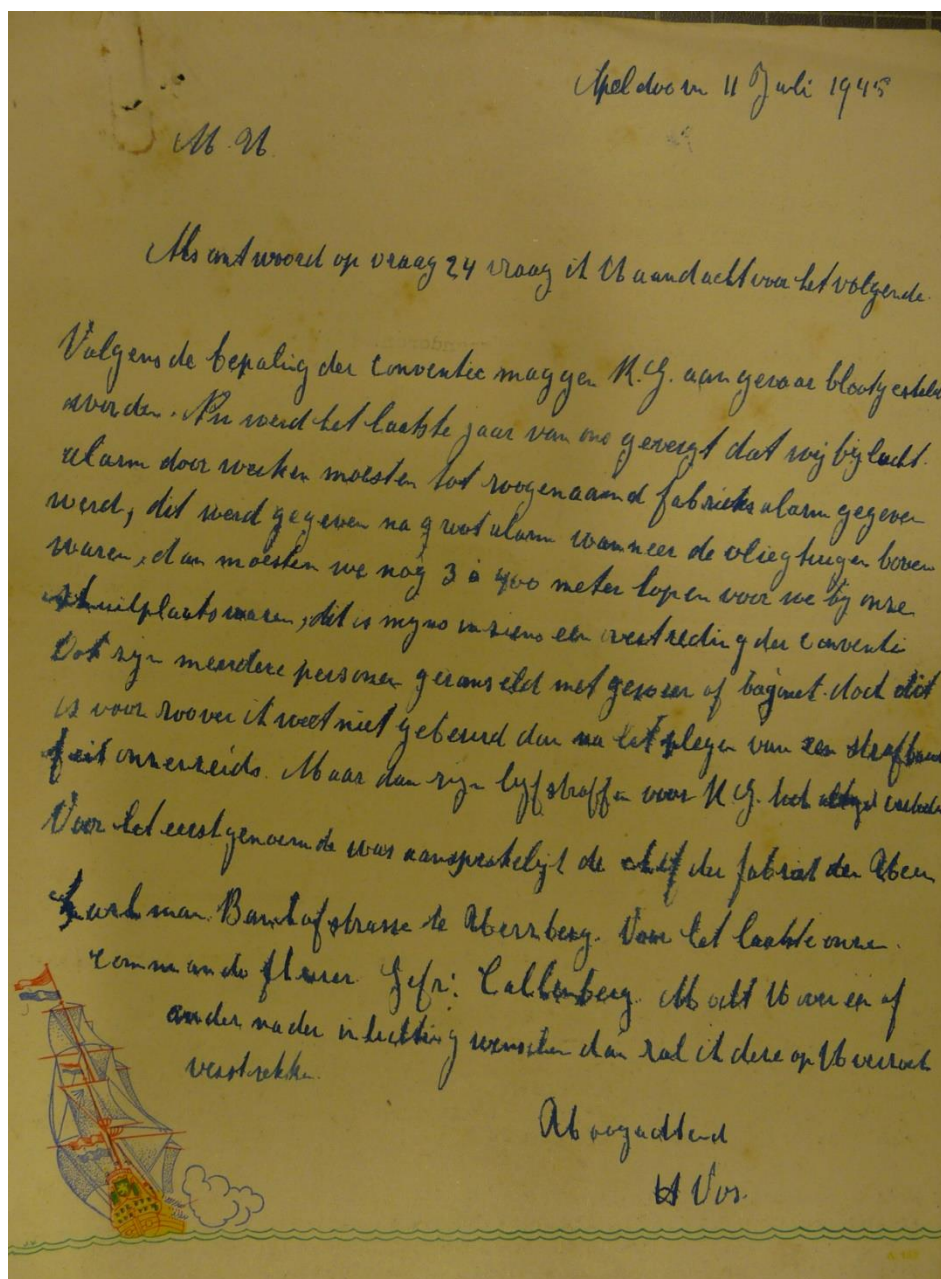 Apeldoorn 11 Juli 1945
M. H.
Als antwoord op vraag 24 vraag ik U aandacht voor het volgende.
Volgens de bepaling der conventie maggen K.G. aan gevaar blootgesteld
worden. Nu werd het laatste jaar van ons gevergt dat wij bij lucht-
alarm door werken moesten tot zoogenaamd fabrieks alarm gegeven
werd, dit werd gegeven na groot alarm wanneer de vliegtuigen boven
waren, dan moesten we nog 3 à 400 meter lopen voor we bij onze
schuilplaats waren, dit is myns inziens een overtreding der conventie
Ook zijn meerdere personen geranseld met geweer of bajonet doch dit
is voor zoover ik weet niet gebeurd dan na het plegen van een strafbaar
feit onzerzeids. Maar dan zijn lyfstraffen voor K.G. toch
Voor het eerstgenoemde was aansprakelijk de chef der fabriek den Heer
man. Banhofstrasse te Herzberg. Voor het laatste onze
commando fhurer Gefr: Callenberg. Mocht U over en of
ander nader inlichting wenschen dan zal ik deze op U verzoek
verstrekken.
Hoogachtend
H Vos.